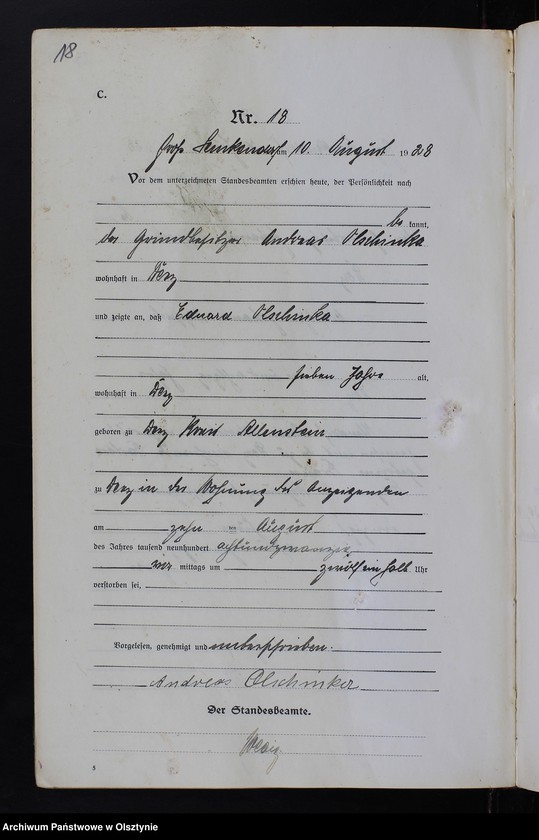 18
C.
Nr. 18
Groß Lemkendorf am 10. August 1928
Vor dem unterzeichneten Standesbeamten erschien heute, der Persönlichkeit nach
be kannt,
der Grundbesitzer Andreas Olschinka
wohnhaft in Derz
und zeigte an, daß Eduard Olschinka
sieben Jahre alt,
wohnhaft in Derz
geboren zu Derz Kreis Allenstein
zu Derz in der Wohnung des Anzeigenden
am zehn ten August
des Jahres tausend neunhundert achtundzwanzig
vor mittags um zwölfeinhalb Uhr
verstorben sei,
Vorgelesen, genehmigt und unterschrieben.
Andreas Olschinker
Der Standesbeamte.
5
Archiwum Państwowe w Olsztynie